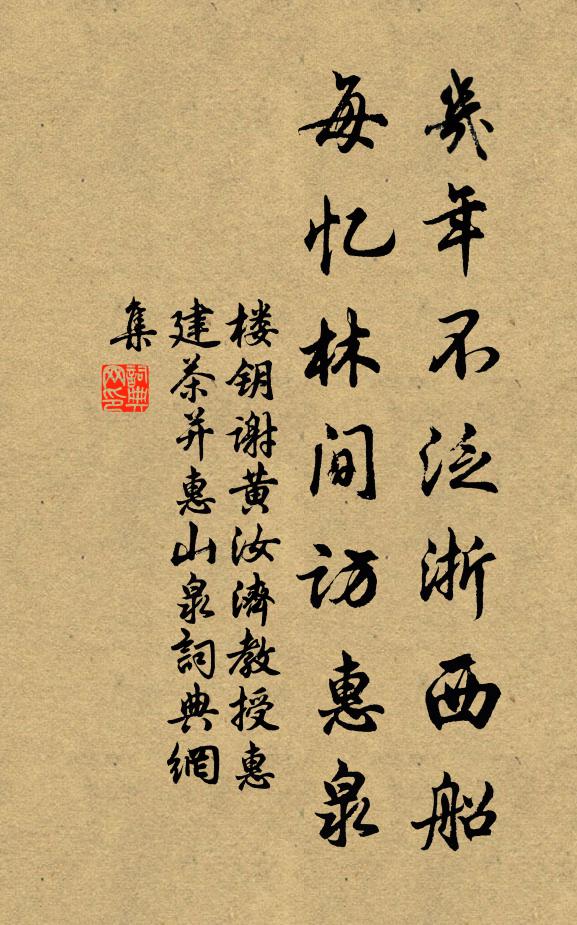 幾年不泛浙西船
每忆林间访惠泉
楼钥谢黄汝濟教授惠
建茶并惠山泉詞典網
集
詞典
网印